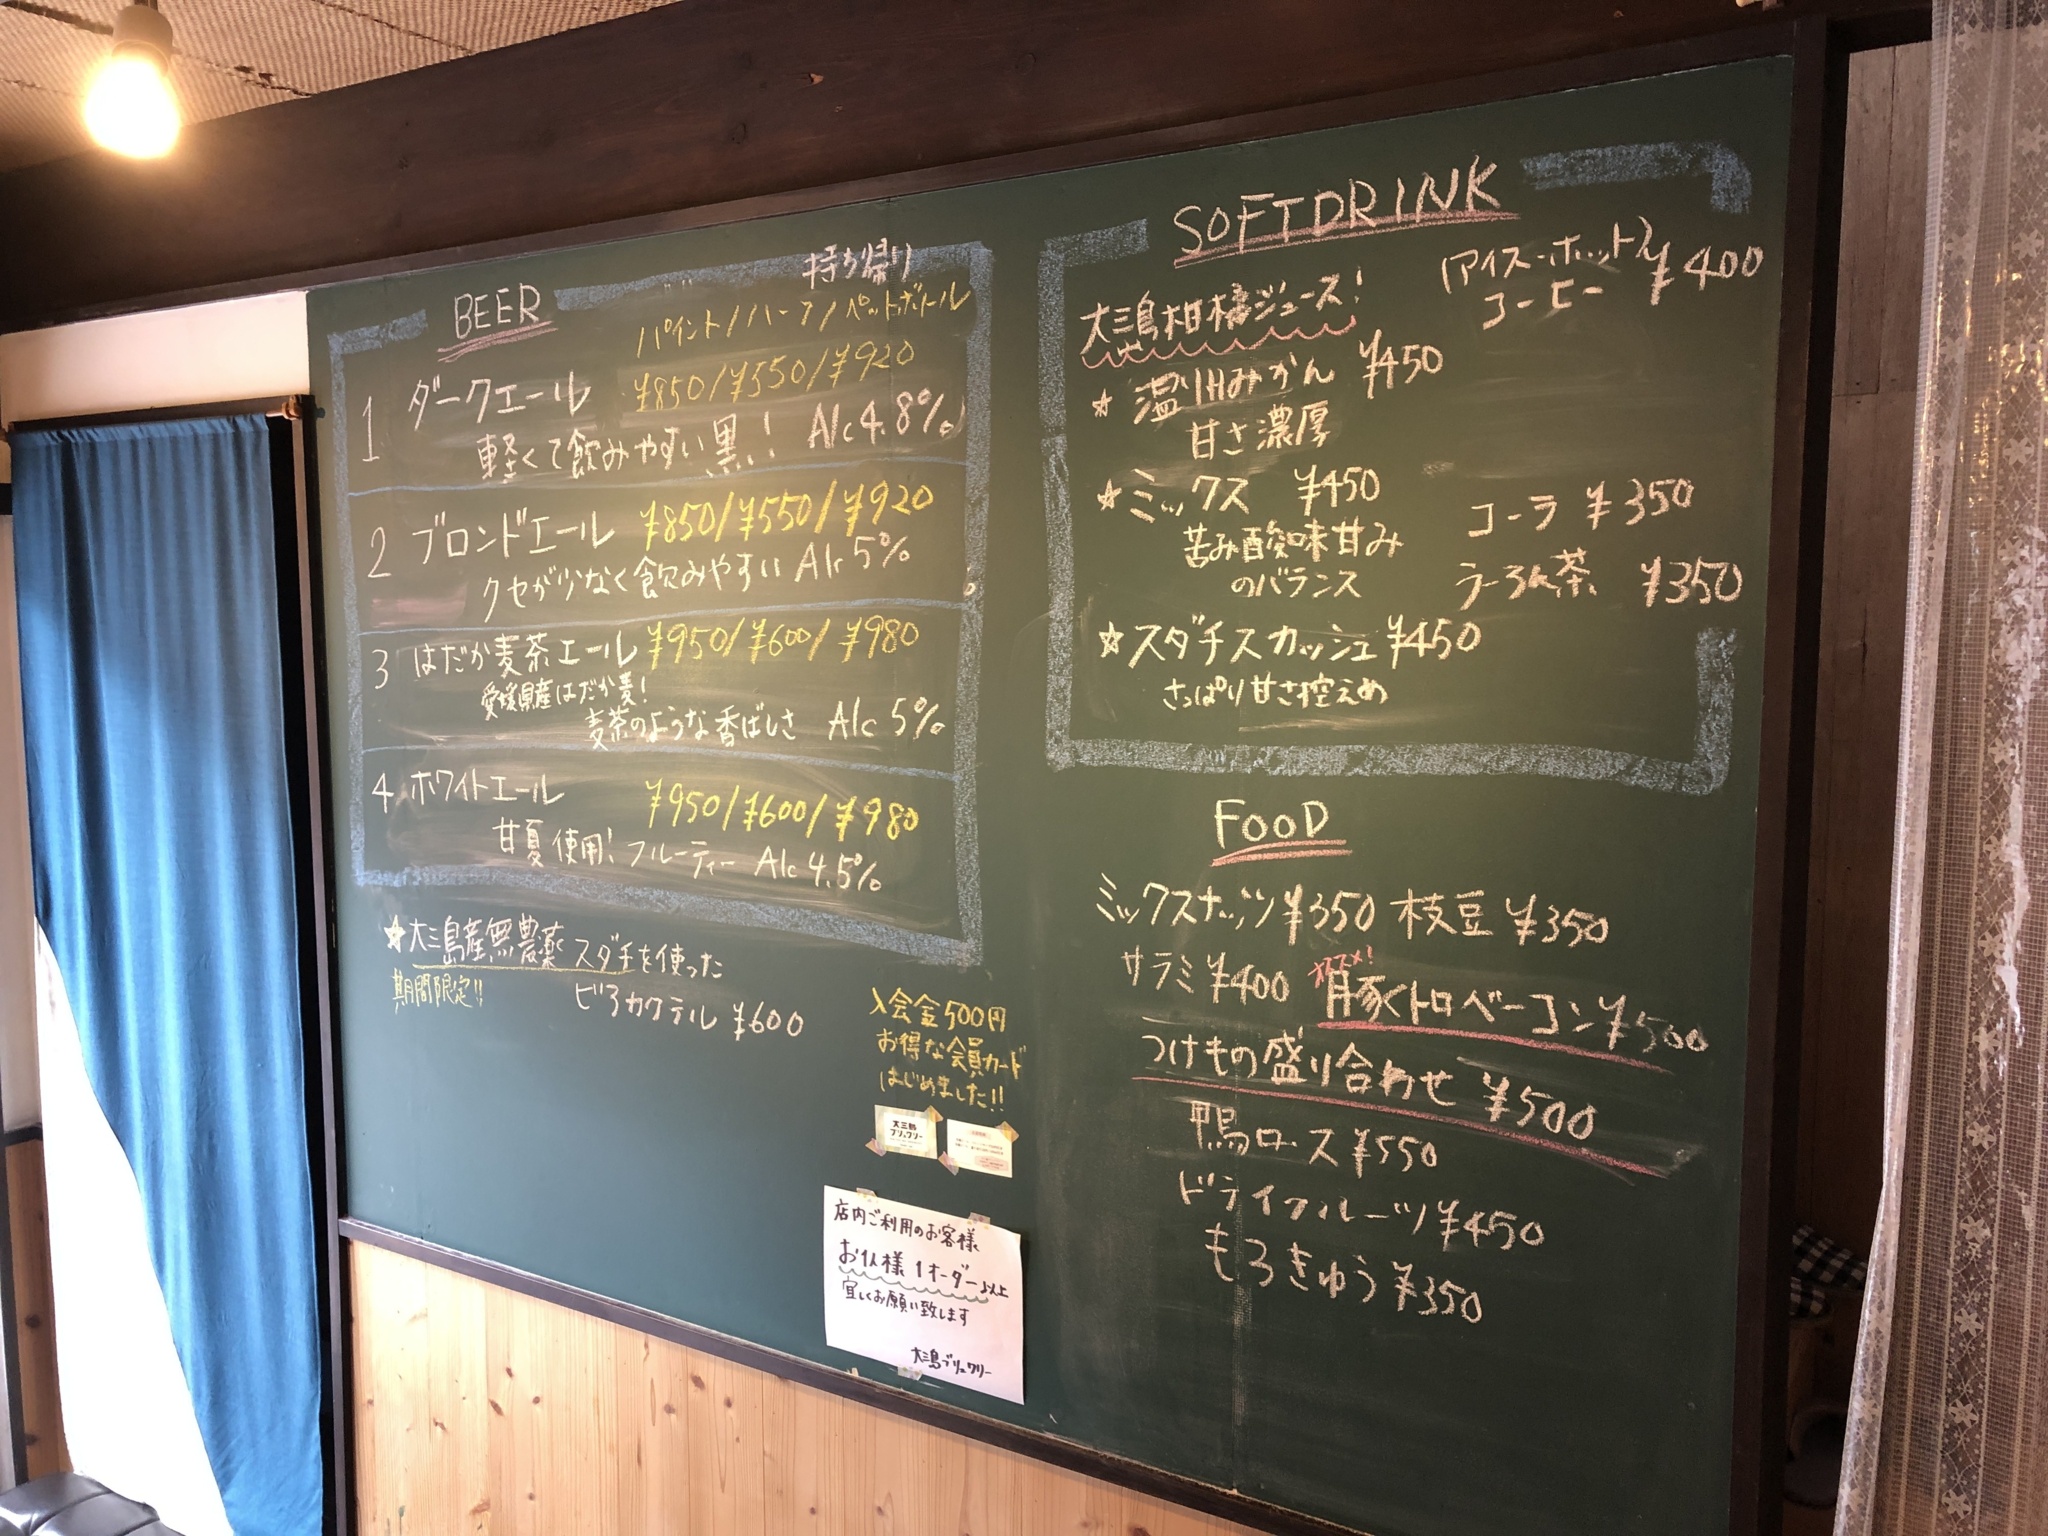 BEER
持ち帰り
パイント/ハーフ/ペットボトル
1 ダークエール ¥850/¥550/¥920
軽くて飲みやすい黒! Alc 4.8%
2 ブロンドエール ¥850/¥550/¥920
クセが少なく飲みやすい Alc 5%
3 はだか麦茶エール ¥950/¥600/¥980
愛媛県産はだか麦!
麦茶のような香ばしさ Alc 5%
4 ホワイトエール ¥950/¥600/¥980
甘夏使用! フルーティー Alc 4.5%
☆大三島産無農薬 スダチを使った
期間限定!! ビアカクテル ¥600
入会金500円
お得な会員カード
はじめました!!
大三島
ブリュワリー
店内ご利用のお客様
お1人様 1オーダー以上
宜しくお願い致します
大三島ブリュワリー
SOFTDRINK
大三島柑橘ジュース!
☆温州みかん ¥450
甘さ濃厚
☆ミックス ¥450
苦み酸味甘み
のバランス
☆スダチスカッシュ ¥450
さっぱり甘さ控えめ
(アイス・ホット)
コーヒー ¥400
コーラ ¥350
うーろん茶 ¥350
FOOD
ミックスナッツ ¥350 枝豆 ¥350
サラミ ¥400 オススメ! 豚トロベーコン ¥500
つけもの盛り合わせ ¥500
鴨ロース ¥550
ドライフルーツ ¥450
もろきゅう ¥350